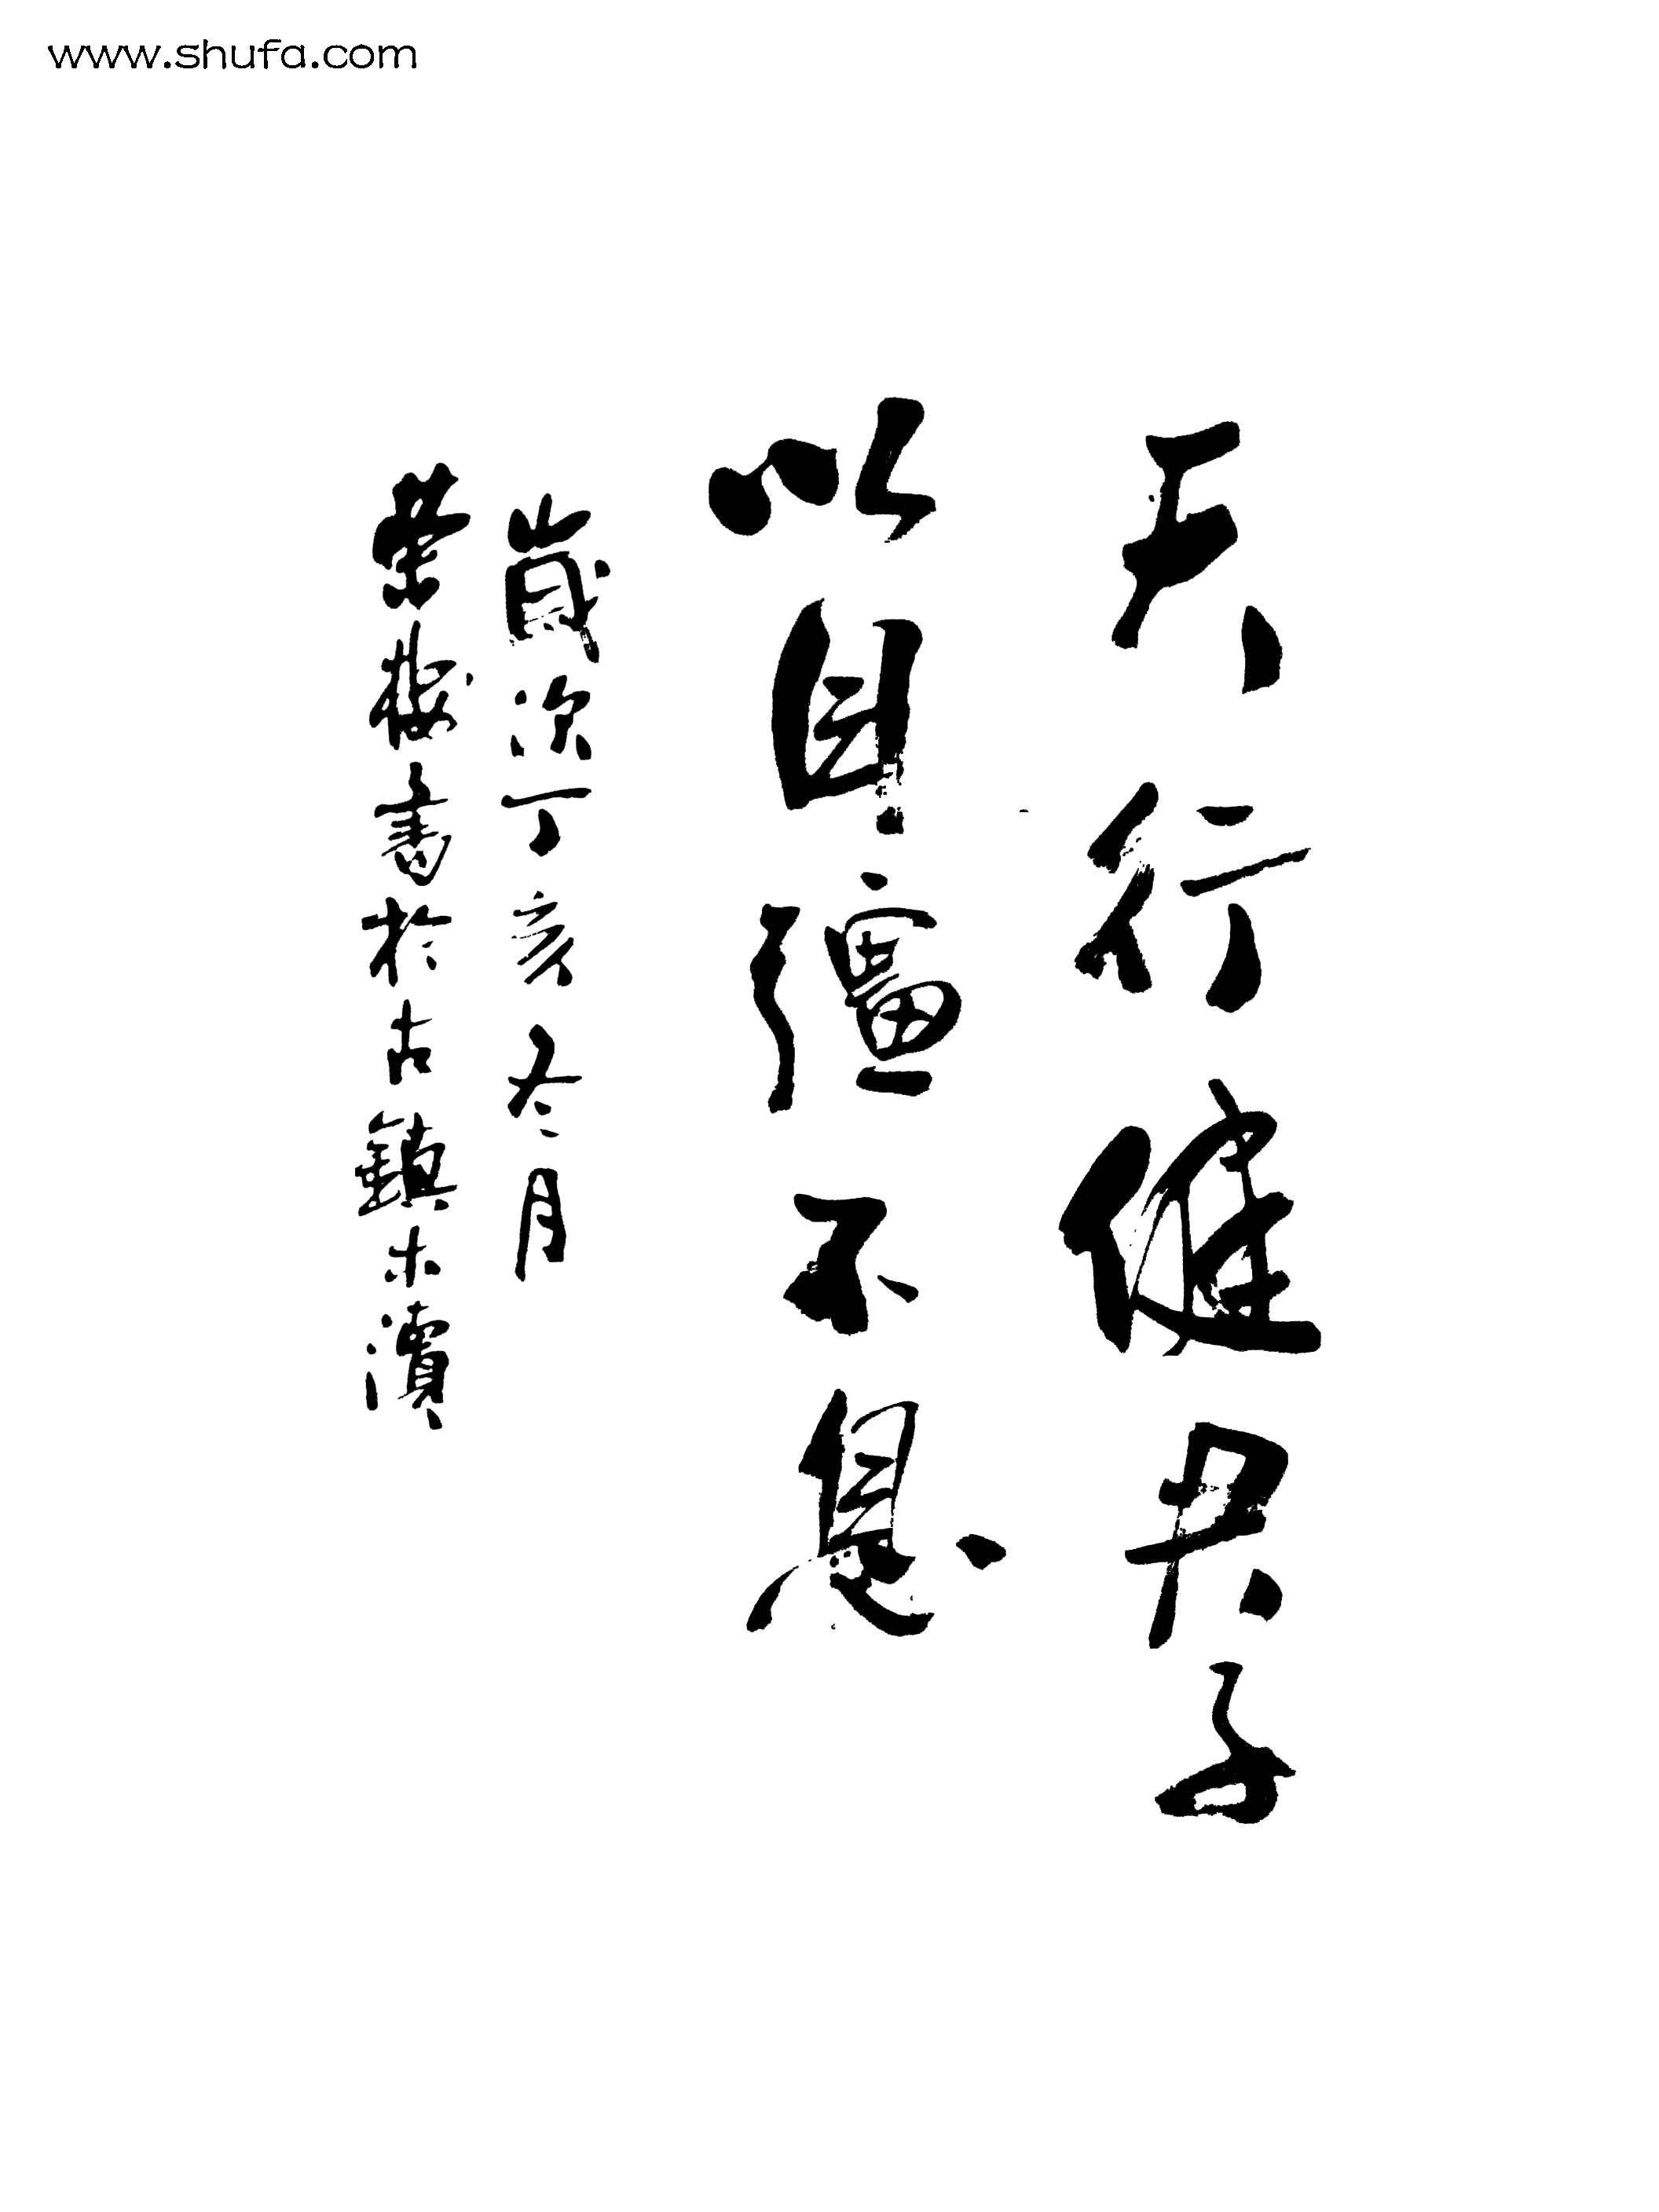 www.shufa.com
天行健君子
以自彊不息
歲次丁亥冬月
書於古鎮木瀆